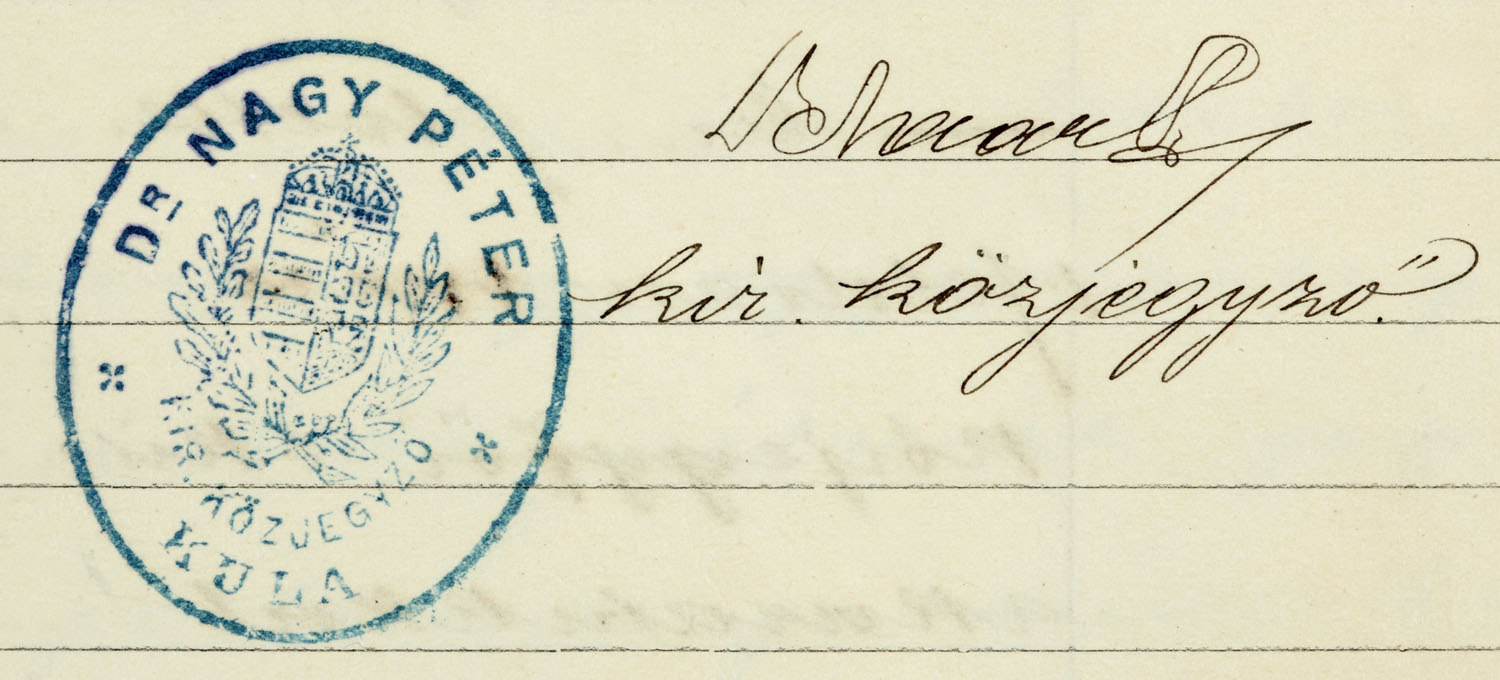 DR NAGY PÉTER
KIR. KÖZJEGYZŐ
KULA
kir. közjegyző.